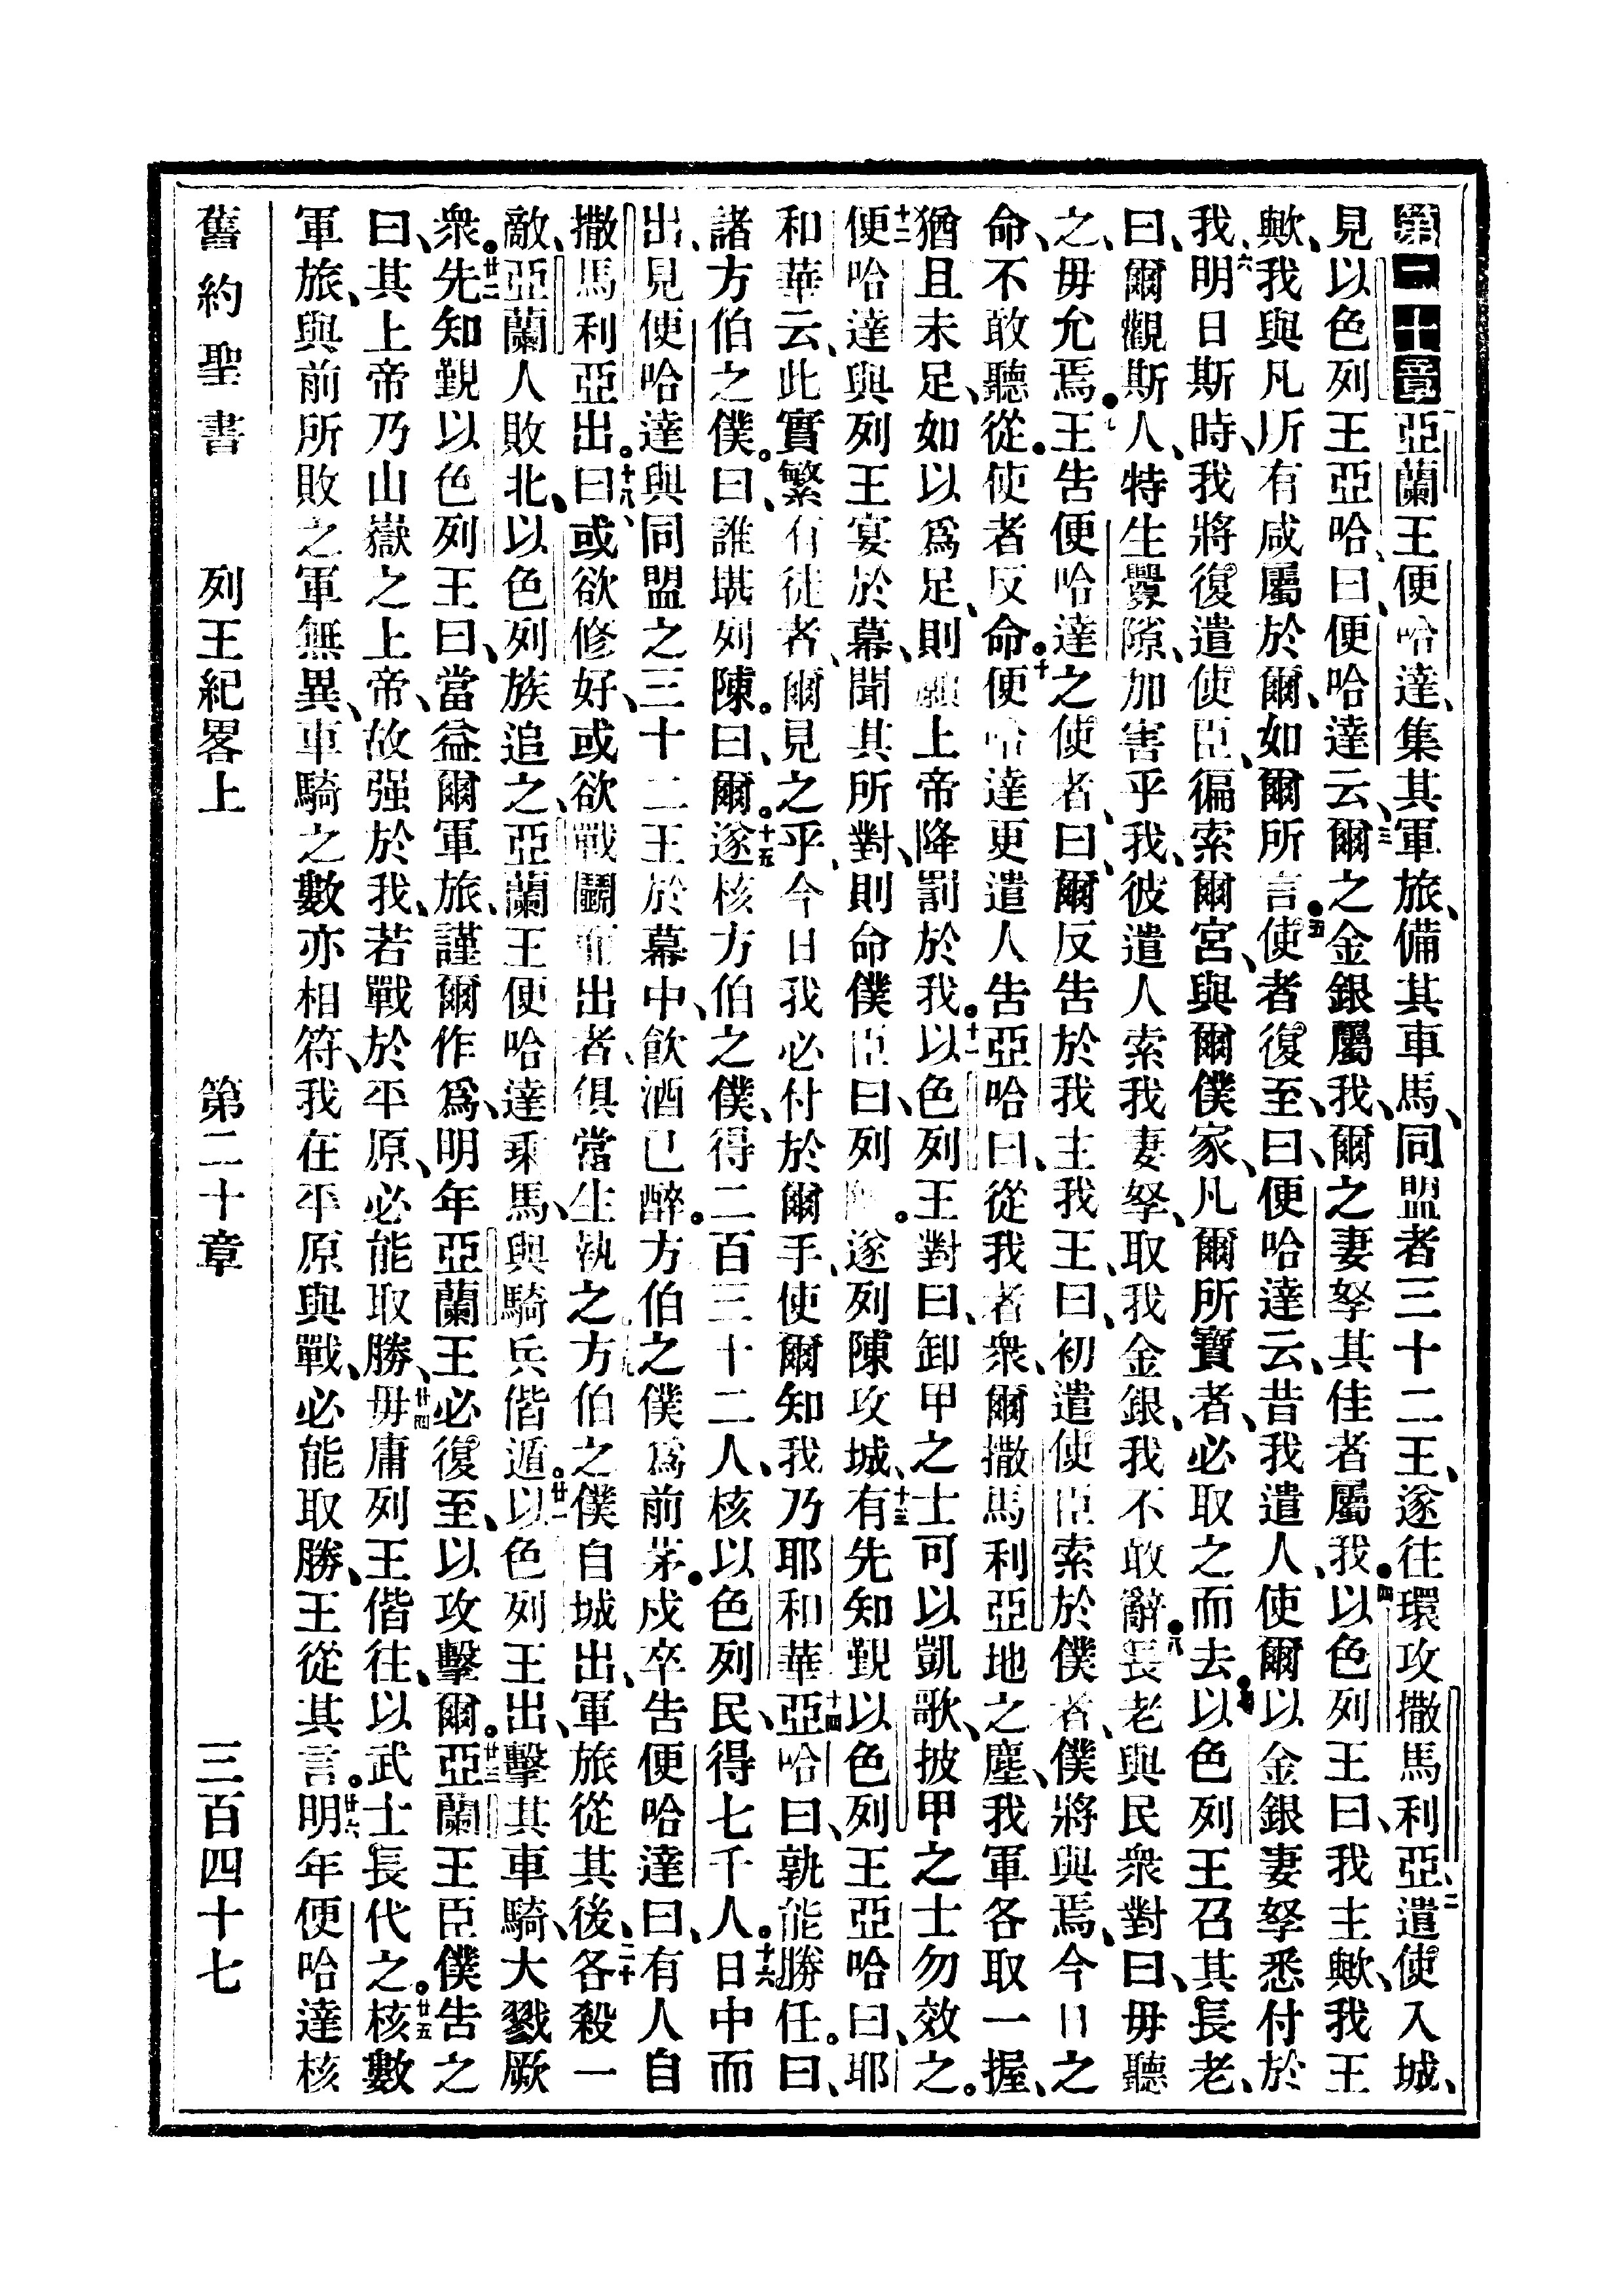 第二十章亞蘭王便哈達、集其軍旅、備其車馬、同盟者三十二王、遂往環攻撒馬利亞、二遣使入城、
見以色列王亞哈、曰、便哈達云、三爾之金銀屬我、爾之妻孥其佳者屬我。四以色列王曰、我主歟、我王
歟、我與凡所有咸屬於爾、如爾所言。五使者復至、曰、便哈達云、昔我遣人、使爾以金銀妻孥悉付於
我、六明日斯時、我將復遣使臣、徧索爾宮、與爾僕家、凡爾所寶者、必取之而去。七以色列王召其長老、
曰、爾觀斯人、特生釁隙、加害乎我、彼遣人索我妻孥、取我金銀、我不敢辭。八長老與民衆對曰、毋聽
之、毋允焉。九王告便哈達之使者、曰、爾反告於我主我王、曰、初遣使臣索於僕者、僕將與焉、今日之
命、不敢聽從。使者反命。十便哈達更遣人告亞哈曰、從我者衆、爾撒馬利亞地之塵、我軍各取一握、
猶且未足、如以爲足、則願上帝降罰於我。十一以色列王對曰、卸甲之士可以凱歌、披甲之士勿效之。
十二便哈達與列王宴於幕、聞其所對、則命僕臣曰、列陳。遂列陳攻城、十三有先知覲以色列王亞哈曰、耶
和華云、此實繁有徒者、爾見之乎、今日我必付於爾手、使爾知我乃耶和華、十四亞哈曰、孰能勝任。曰、
諸方伯之僕。曰、誰堪列陳。曰、爾。十五遂核方伯之僕、得二百三十二人、核以色列民、得七千人。十六日中而
出、見便哈達與同盟之三十二王於幕中、飲酒已醉。方伯之僕爲前茅。戍卒告便哈達曰、有人自
撒馬利亞出。十八曰、或欲修好、或欲戰鬬而出者、俱當生執之、十九方伯之僕自城出、軍旅從其後、二十各殺一
敵、亞蘭人敗北、以色列族追之、亞蘭王便哈達乘馬、與騎兵偕遁。廿一以色列王出、擊其車騎、大戮厥
衆。廿二先知覲以色列王曰、當益爾軍旅、謹爾作爲、明年亞蘭王必復至、以攻擊爾。廿三亞蘭王臣僕告之
曰、其上帝乃山嶽之上帝、故强於我、若戰於平原、必能取勝、廿四毋庸列王偕往、以武士長代之。廿五核數
軍旅、與前所敗之軍無異、車騎之數亦相符、我在平原與戰、必能取勝、王從其言。廿六明年便哈達核
舊約聖書 列王紀畧上 第二十章 三百四十七